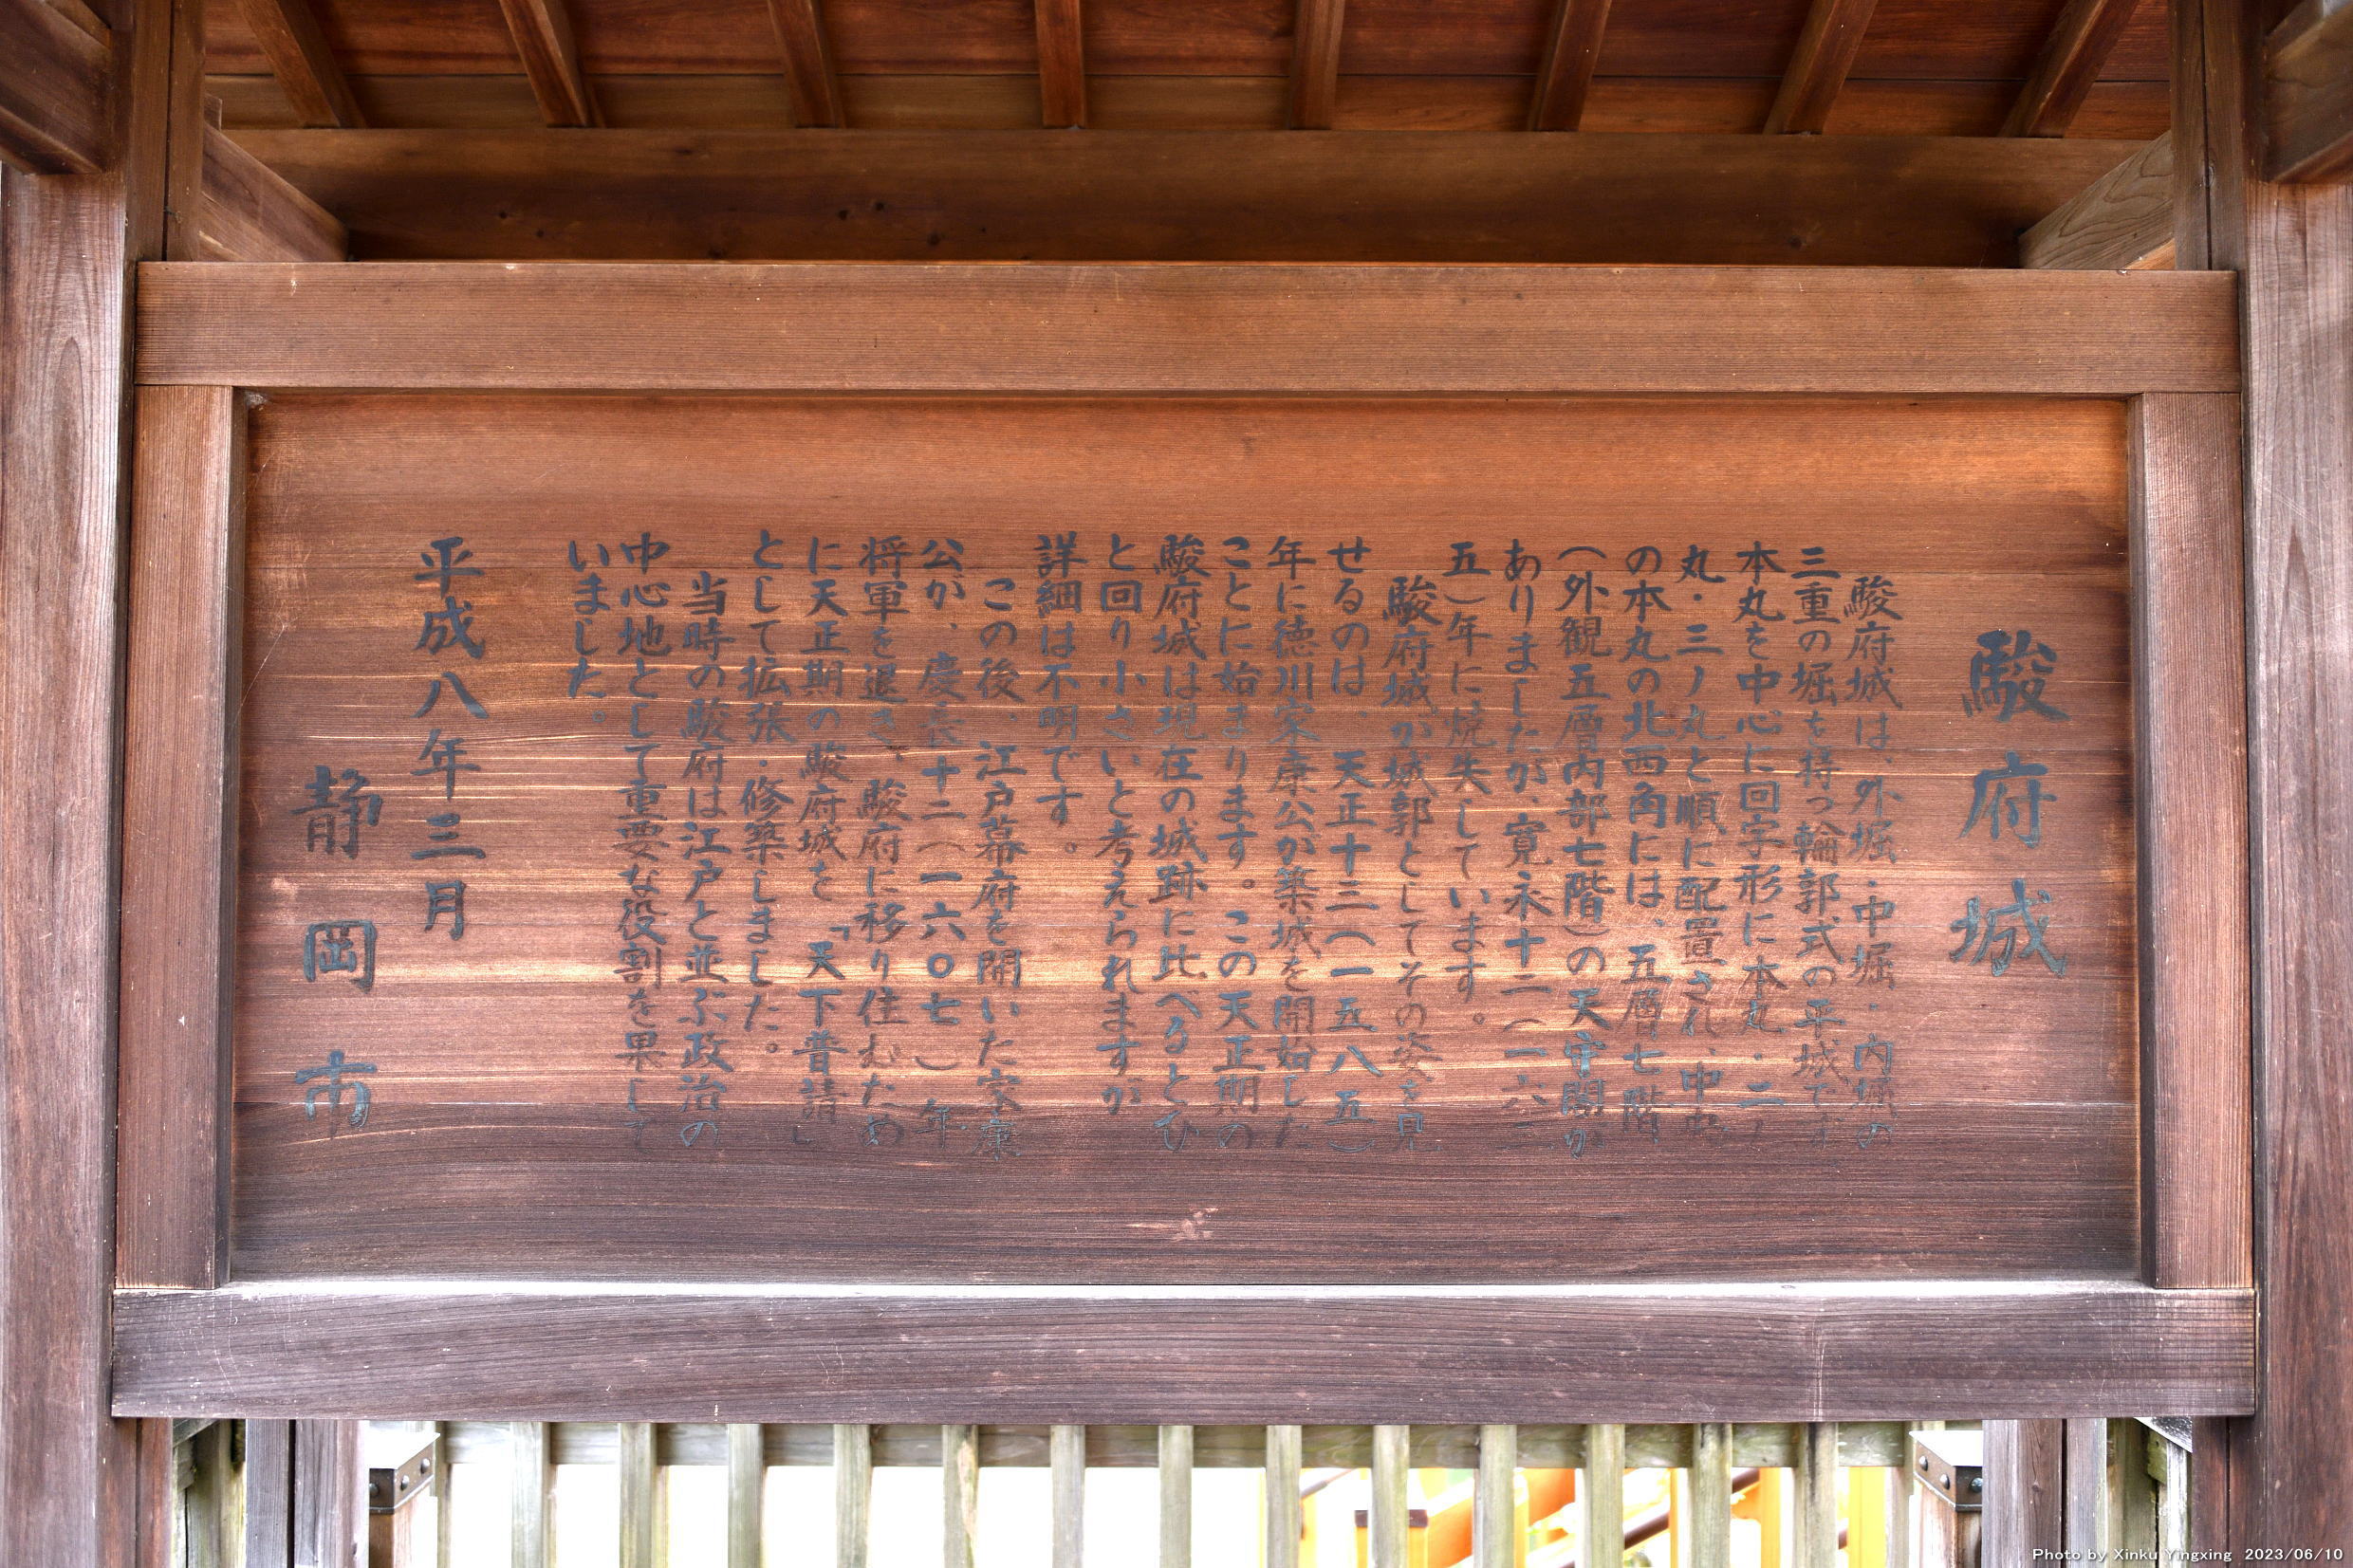 駿府城
駿府城は、外堀・中堀・内堀の
三重の堀を持つ輪郭式の平城です
本丸を中心に回字形に本丸・二ノ
丸・三ノ丸と順に配置され、中央
の本丸の北西角には、五層七階
（外観五層内部七階）の天守閣が
ありましたが、寛永十二（一六三
五）年に焼失しています。
駿府城が城郭としてその姿を見
せるのは、天正十三（一五八五）
年に徳川家康公が築城を開始した
ことに始まります。この天正期の
駿府城は現在の城跡に比べるとひ
と回り小さいと考えられますが
詳細は不明です。
この後、江戸幕府を開いた家康
公が、慶長十二（一六〇七）年
将軍を退き、駿府に移り住むため
に天正期の駿府城を「天下普請」
として拡張・修築しました。
当時の駿府は江戸と並ぶ政治の
中心地として重要な役割を果して
いました。
平成八年三月
静岡市
Photo by Xinku Yingxing 2023/06/10